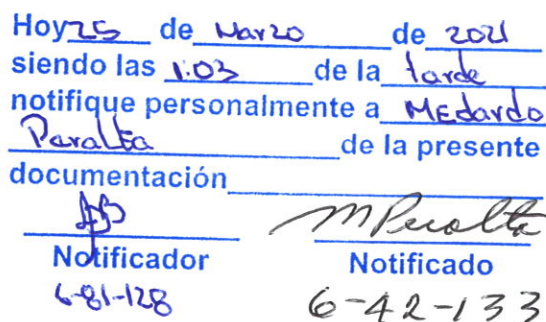 Hoy 25 de Marzo de 2021
siendo las 1:03 de la tarde
notifique personalmente a MEdardo
Peralta de la presente
documentación
MPeralta
Notificador Notificado
6-81-128 6-42-133